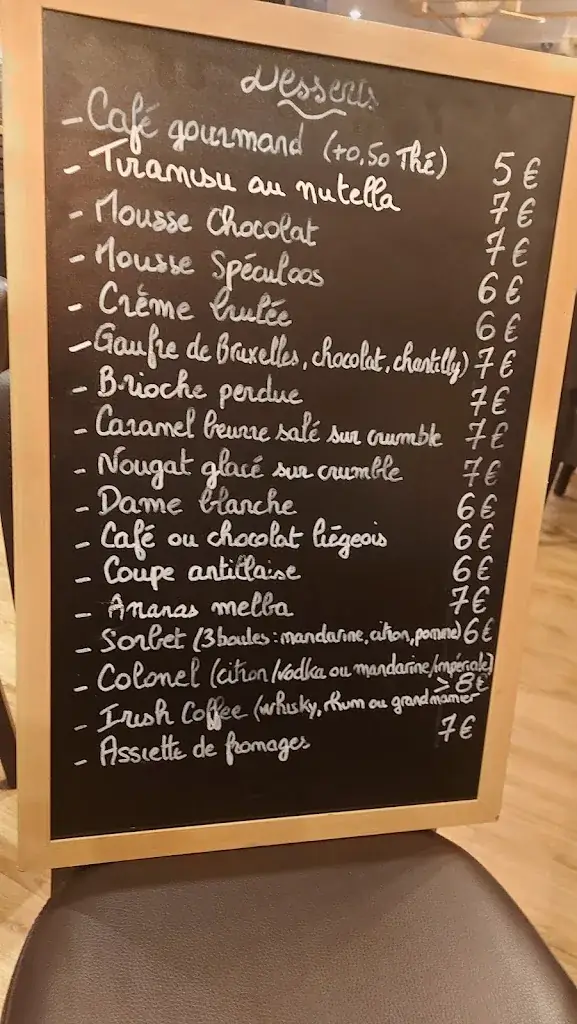 Desserts
- Café gourmand (+0,50 Thé) 5 €
- Tiramisu au nutella 7 €
- Mousse Chocolat 7 €
- Mousse Spéculoos 6 €
- Crème brulée 6 €
- Gaufre de Bruxelles, chocolat, chantilly) 7 €
- Brioche perdue 7 €
- Caramel beurre salé sur crumble 7 €
- Nougat glacé sur crumble 7 €
- Dame blanche 6 €
- Café ou chocolat liégeois 6 €
- Coupe antillaise 6 €
- Ananas melba 7 €
- Sorbet (3 boules : mandarine, citron, pomme) 6 €
- Colonel (citron/vodka ou mandarine/impériale)
> 8 €
- Irish Coffee (whisky, rhum ou grand marnier
- Assiette de fromages 7 €